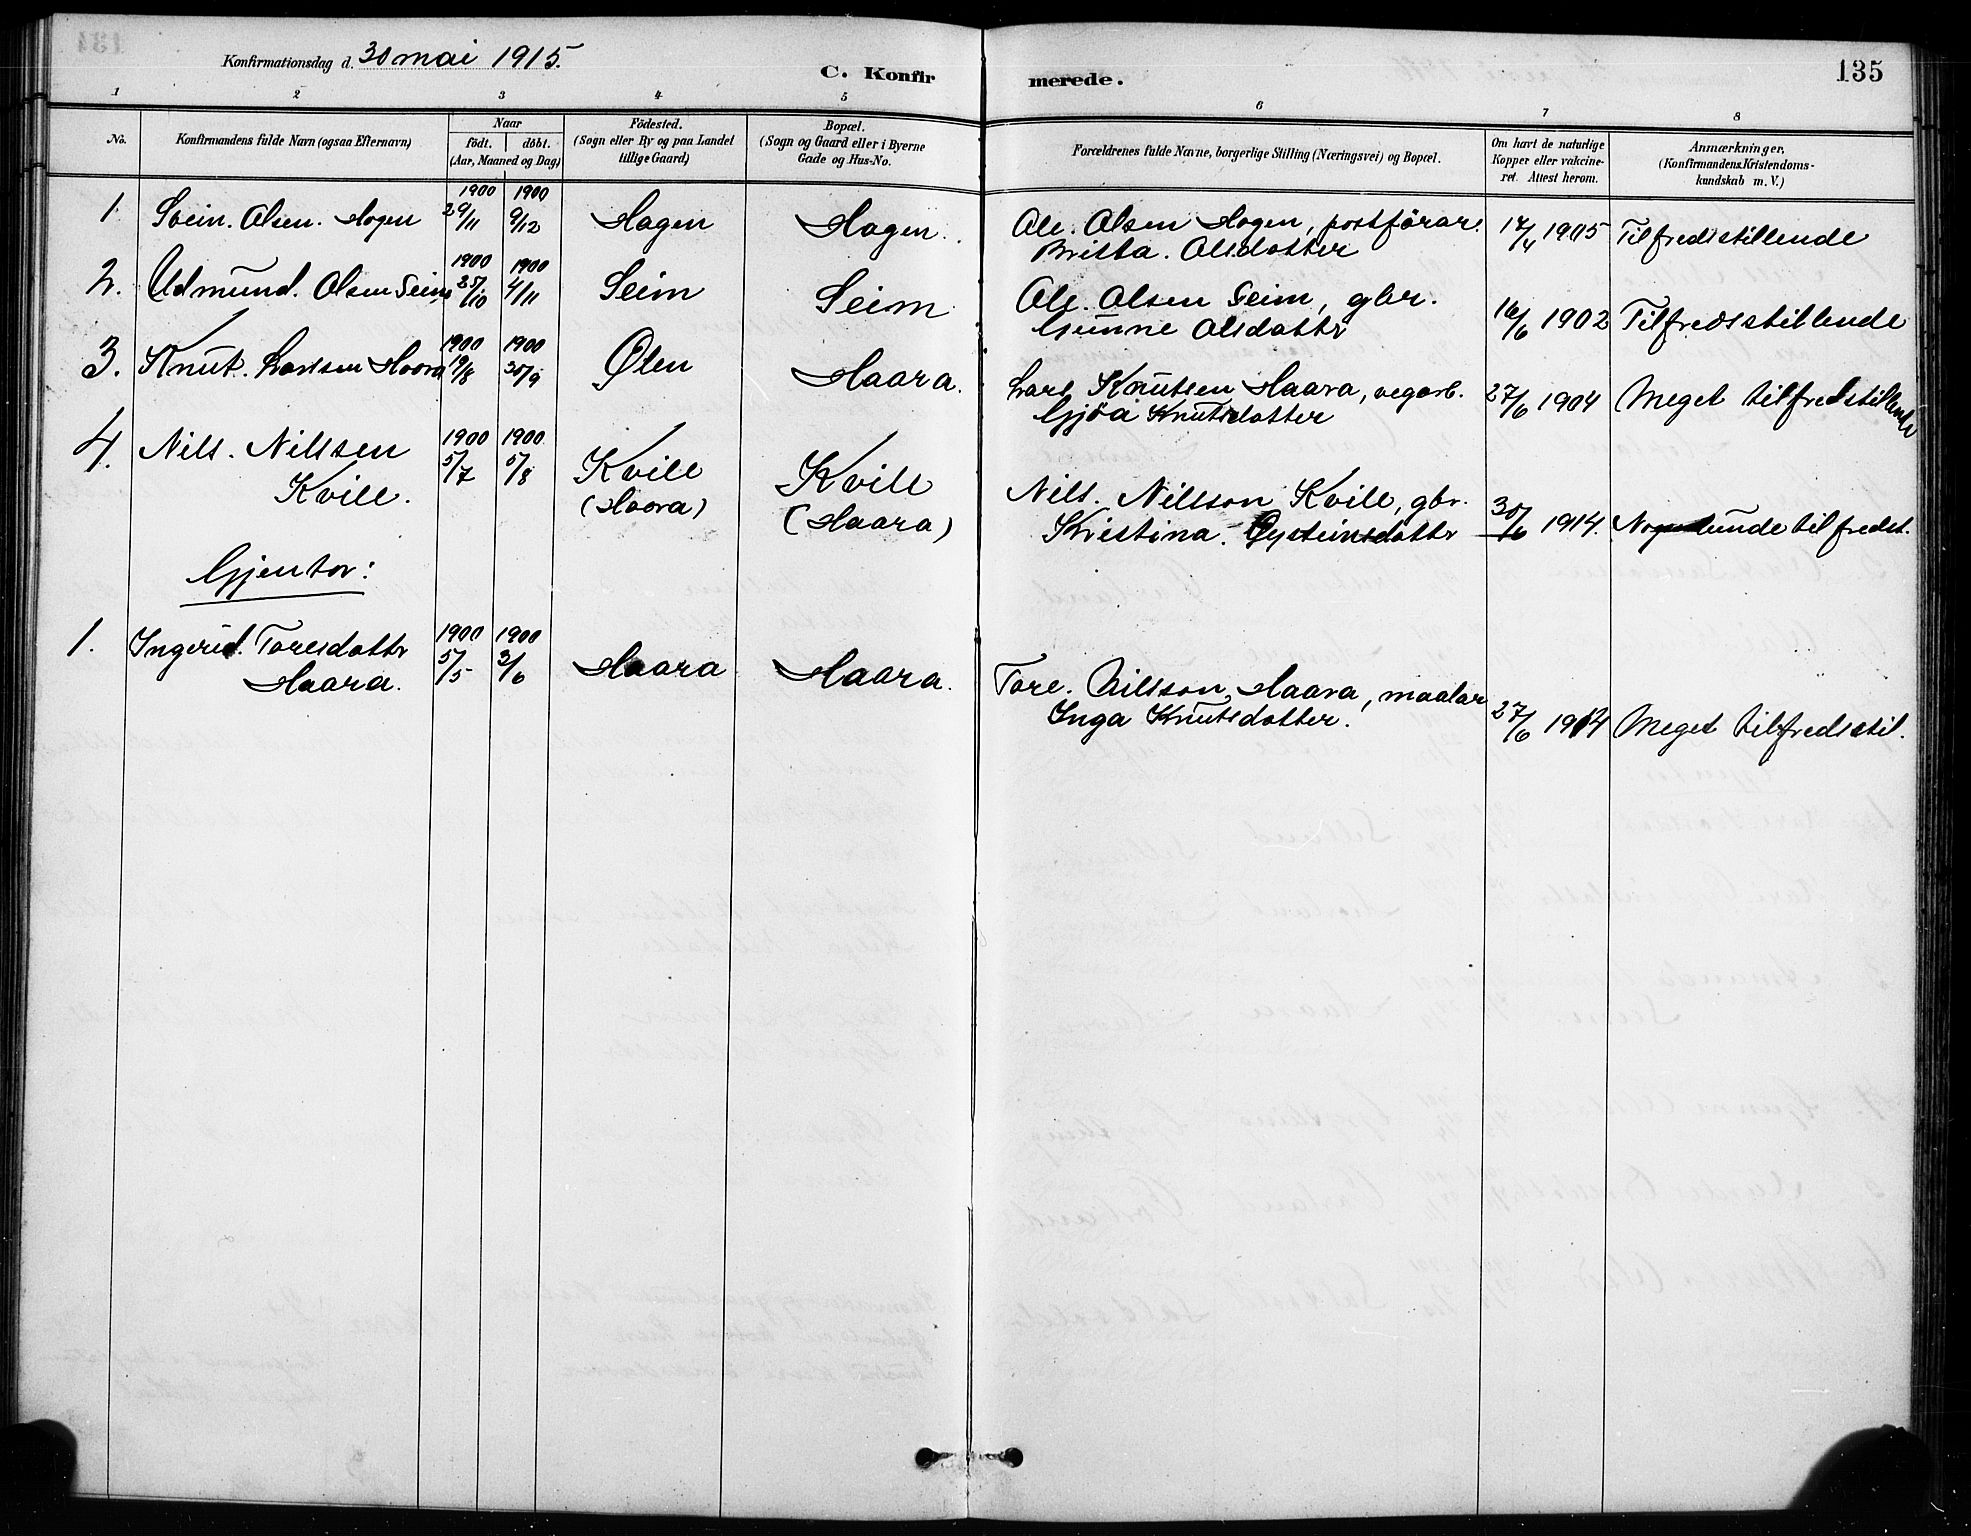 Konfirmationsdag d. 30 mai 1915.
C. Konfirmerede.
135
1 2 3 4 5 6 7 8
No.
Konfirmandens fulde Navn (ogsaa Efternavn)
Naar
födt. döbt.
(Aar, Maaned og Dag)
Födested.
(Sogn eller By og paa Landet
tillige Gaard)
Bopæl.
(Sogn og Gaard eller i Byerne
Gade og Hus-No.
Forældrenes fulde Navne, borgerlige Stilling (Næringsvei) og Bopæl.
Om havt de naturlige
Kopper eller vakcine-
ret. Attest herom.
Anmærkninger,
(Konfirmandens Kristendoms-
kundskab m. V.)
1900 1900
1. Svein. Olsen. Hagen 29/11 9/12 Hagen Hagen. Ole. Olsen Hagen, postförar. 17/4 1905 Tilfredsstillende
Britta. Olsdotter
1900 1900
2. Udmund. Olsen Seim 25/10 4/11 Seim Seim Ole. Olsen Seim, gbr. 16/6 1902 Tilfredsstillende
Gunne Olsdottr
1900 1900
3. Knut. Larsen Haara 19/8 30/9 Ølen Haara. Lars Knutsen Haara, vegarb. 27/6 1904 Meget tilfredsstillende
Gjöa Knutsdotter
1900 1900
4. Nils. Nilssen 5/7 5/8 Kvill Kvill Nils. Nilsson Kvill, gbr. 30/6 1914.
Kvill. (Haara) (Haara) Kristina. Øysteinsdottr tilfredst.
Gjentor:
1900 1900
1. Ingerid. Toresdottr 5/5 3/6 Haara Haara. Tore. Nilsson Haara, maalar 27/6 1914 Meget tilfredsstil.
Haara. Inga Knutsdotter.